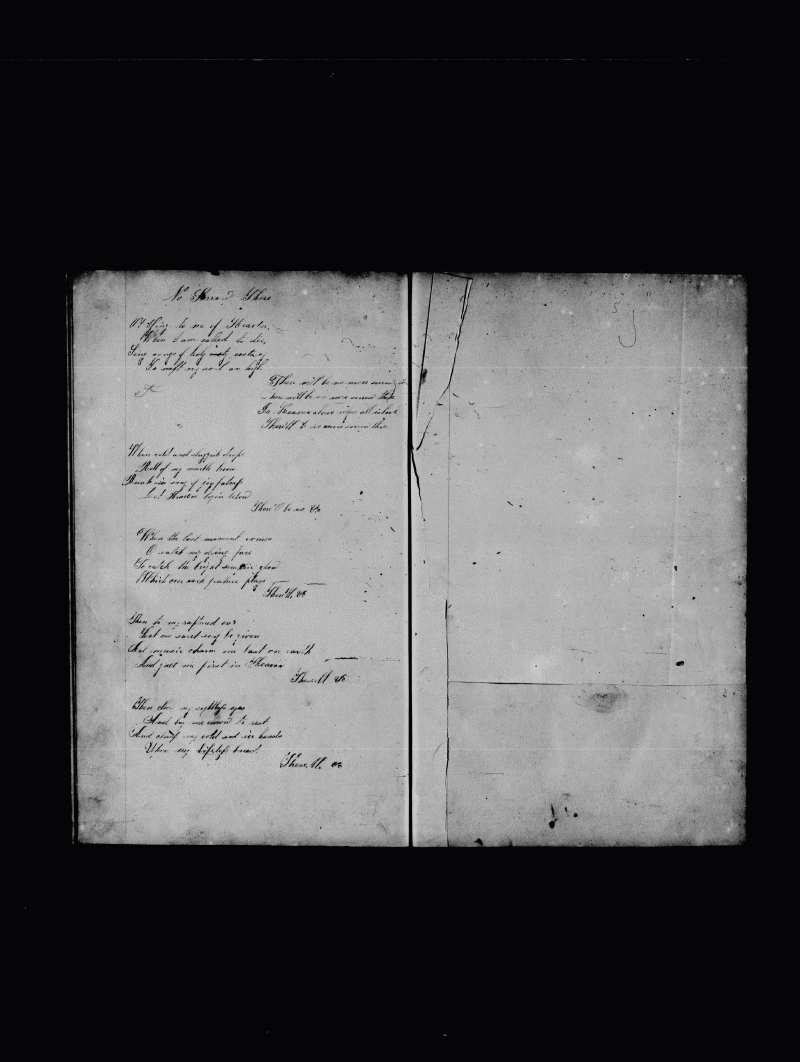 No Sorrow There
Oh! Sing to me of Heaven,
When I am called to die,
Sing songs of holy extacy,
To waft my soul on high.
There will be no more sorrow
there will be no more sorrow there
In Heaven above where all is love
There'll be no more sorrow there.
When cold and sluggish drops
Roll off my marble brow
Break in songs of joyfulness
Let Heaven begin below
There'll be no &c
When the last moment comes
O watch my dying face
To catch the bright seraphic glow
Which over each feature plays
There'll. &c
Then to my raptured ear
Let one sweet song be given
Let music charm me last on earth
And greet me first in Heaven
There'll &c
Then close my sightless eyes
And lay me down to rest
And clasp my cold and icy hands
Upon my lifeless breast.
There'll. &c
5